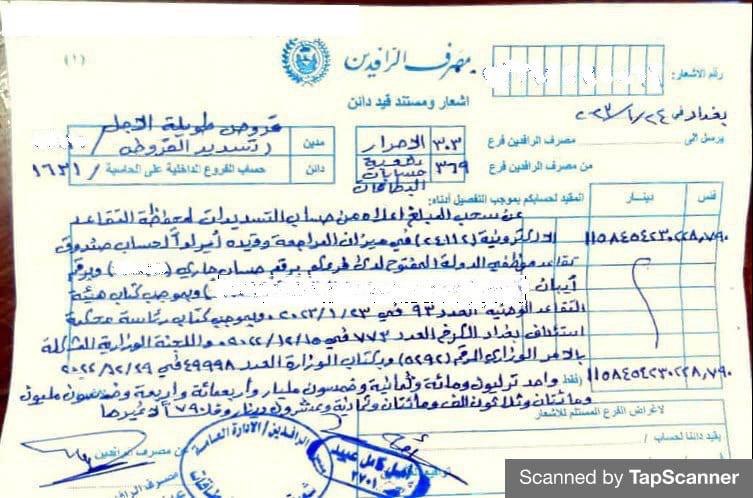 مصرف الرافدين
(١)
رقم الاشعار:
اشعار ومستند قيد دائن
بغداد في ٢٠٢٣/١/٢٤
يرسل الى مصرف الرافدين فرع
٣٠٣
الاحرار
مدين
قروض طويلة الاجل
(تسديد القروض)
من مصرف الرافدين فرع
٣٦٩
تصفية حسابات البطاقات
دائن
حساب الفروع الداخلية على الحاسبة / ١٦٣١
فلس
دينار
المقيد لحسابكم بموجب التفصيل أدناه:
عن سحب المبلغ اعلاه من حساب التسديدات لمحفظة التقاعد
١١٥٨٤٥٤٢٣٠٢٢٨,٧٩٠
الالكترونية (٢٤١١٢) في ميزان المراجعة وقيده ايراداً لحساب صندوق
تقاعد موظفي الدولة المفتوح لدى فرعكم برقم حساب جاري ( ) وبرقم
آيبان ( ) وبموجب كتاب هيئة
التقاعد الوطنية العدد ٩٣ في ٢٠٢٣/١/٢٣ وبموجب كتاب رئاسة محكمة
استئناف بغداد الكرخ العدد ٧٧٣ في ٢٠٢٢/١٢/١٥ واللجنة الوزارية المشكلة
بالامر الوزاري المرقم (٥٢٩٢) وبكتاب الوزارة العدد ٤٩٩٩٨ في ٢٠٢٢/١٢/٢٩
١١٥٨٤٥٤٢٣٠٢٢٨,٧٩٠
فقط واحد ترليون ومائة وثمانية وخمسون مليار واربعمائة واربعة وخمسون مليون
ومائتان وثلاثون الف ومائتان وثمانية وعشرون دينار و ٧٩٠ فلس لا غيرها
لاغراض الفرع المستلم للاشعار
يقيد دائنا لحساب /
عن مصرف الرافدين
مصرف الرافدين / الادارة العامة
امل كامل عبيد
٢٧٠١
Scanned by TapScanner